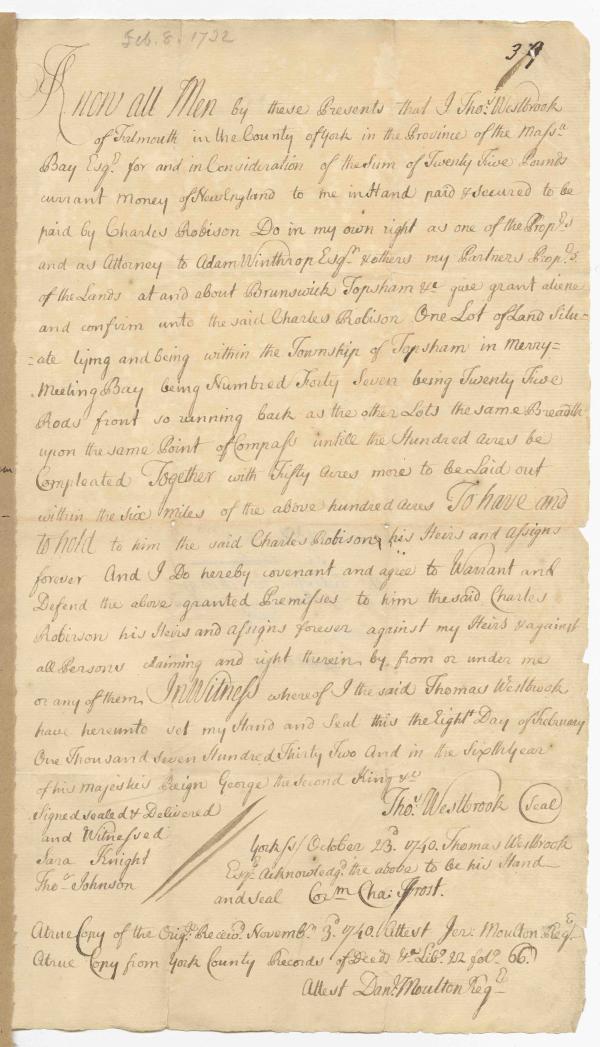 Feb. 8. 1732
Know all Men by these Presents that I Thoˢ Westbrook
of Falmouth in the County of York in the Province of the Massᵃ
Bay Esqʳ for and in Consideration of the Sum of Twenty Five Pounds
currant Money of New England to me in Hand paid & secured to be
paid by Charles Robison Do in my own right as one of the Propʳˢ
and as Attorney to Adam Winthrop Esqʳ & others my Partners Propʳˢ
of the Lands at and about Brunswick Topsham &c give grant aliene
and confirm unto the said Charles Robison One Lot of Land Situ=
=ate lying and being within the Township of Topsham in Merry=
Meeting Bay being Numbred Forty Seven being Twenty Five
Rods front so running back as the other Lots the same Breadth
upon the same Point of Compass untill the Hundred Acres be
Compleated Together with Fifty Acres more to be Laid out
within the six Miles of the above hundred Acres To have and
to hold to him the said Charles Robison his Heirs and Assigns
forever And I Do hereby covenant and agree to Warrant and
Defend the above granted Premisses to him the said Charles
Robinson his Heirs and Assigns forever against my Heirs & against
all Persons claiming and right therein by from or under me
or any of them In Witness whereof I the said Thomas Westbrook
have hereunto set my Hand and Seal this the Eight Day of February
One Thousand seven Hundred Thirty Two And in the Sixth Year
of his Majesties Reign George the Second King &c
Thoˢ Westbrook Seal
Signed sealed & Delivered
and Witnessed
Sara Knight
Thoˢ Johnson
York ss/ October 23ᵈ 1740. Thomas Westbrook
Esqʳ Acknowledgᵈ the above to be his Hand
and seal Corᵐ Cha: Frost.
A true Copy of the Origˡ Receivᵈ Novembʳ 3ᵈ 1740. Attest Jer: Moulton Regʳ
A true Copy from York County Records of Deeds &c Libº 22 folº 66.
Attest Danˡ Moulton Regʳ